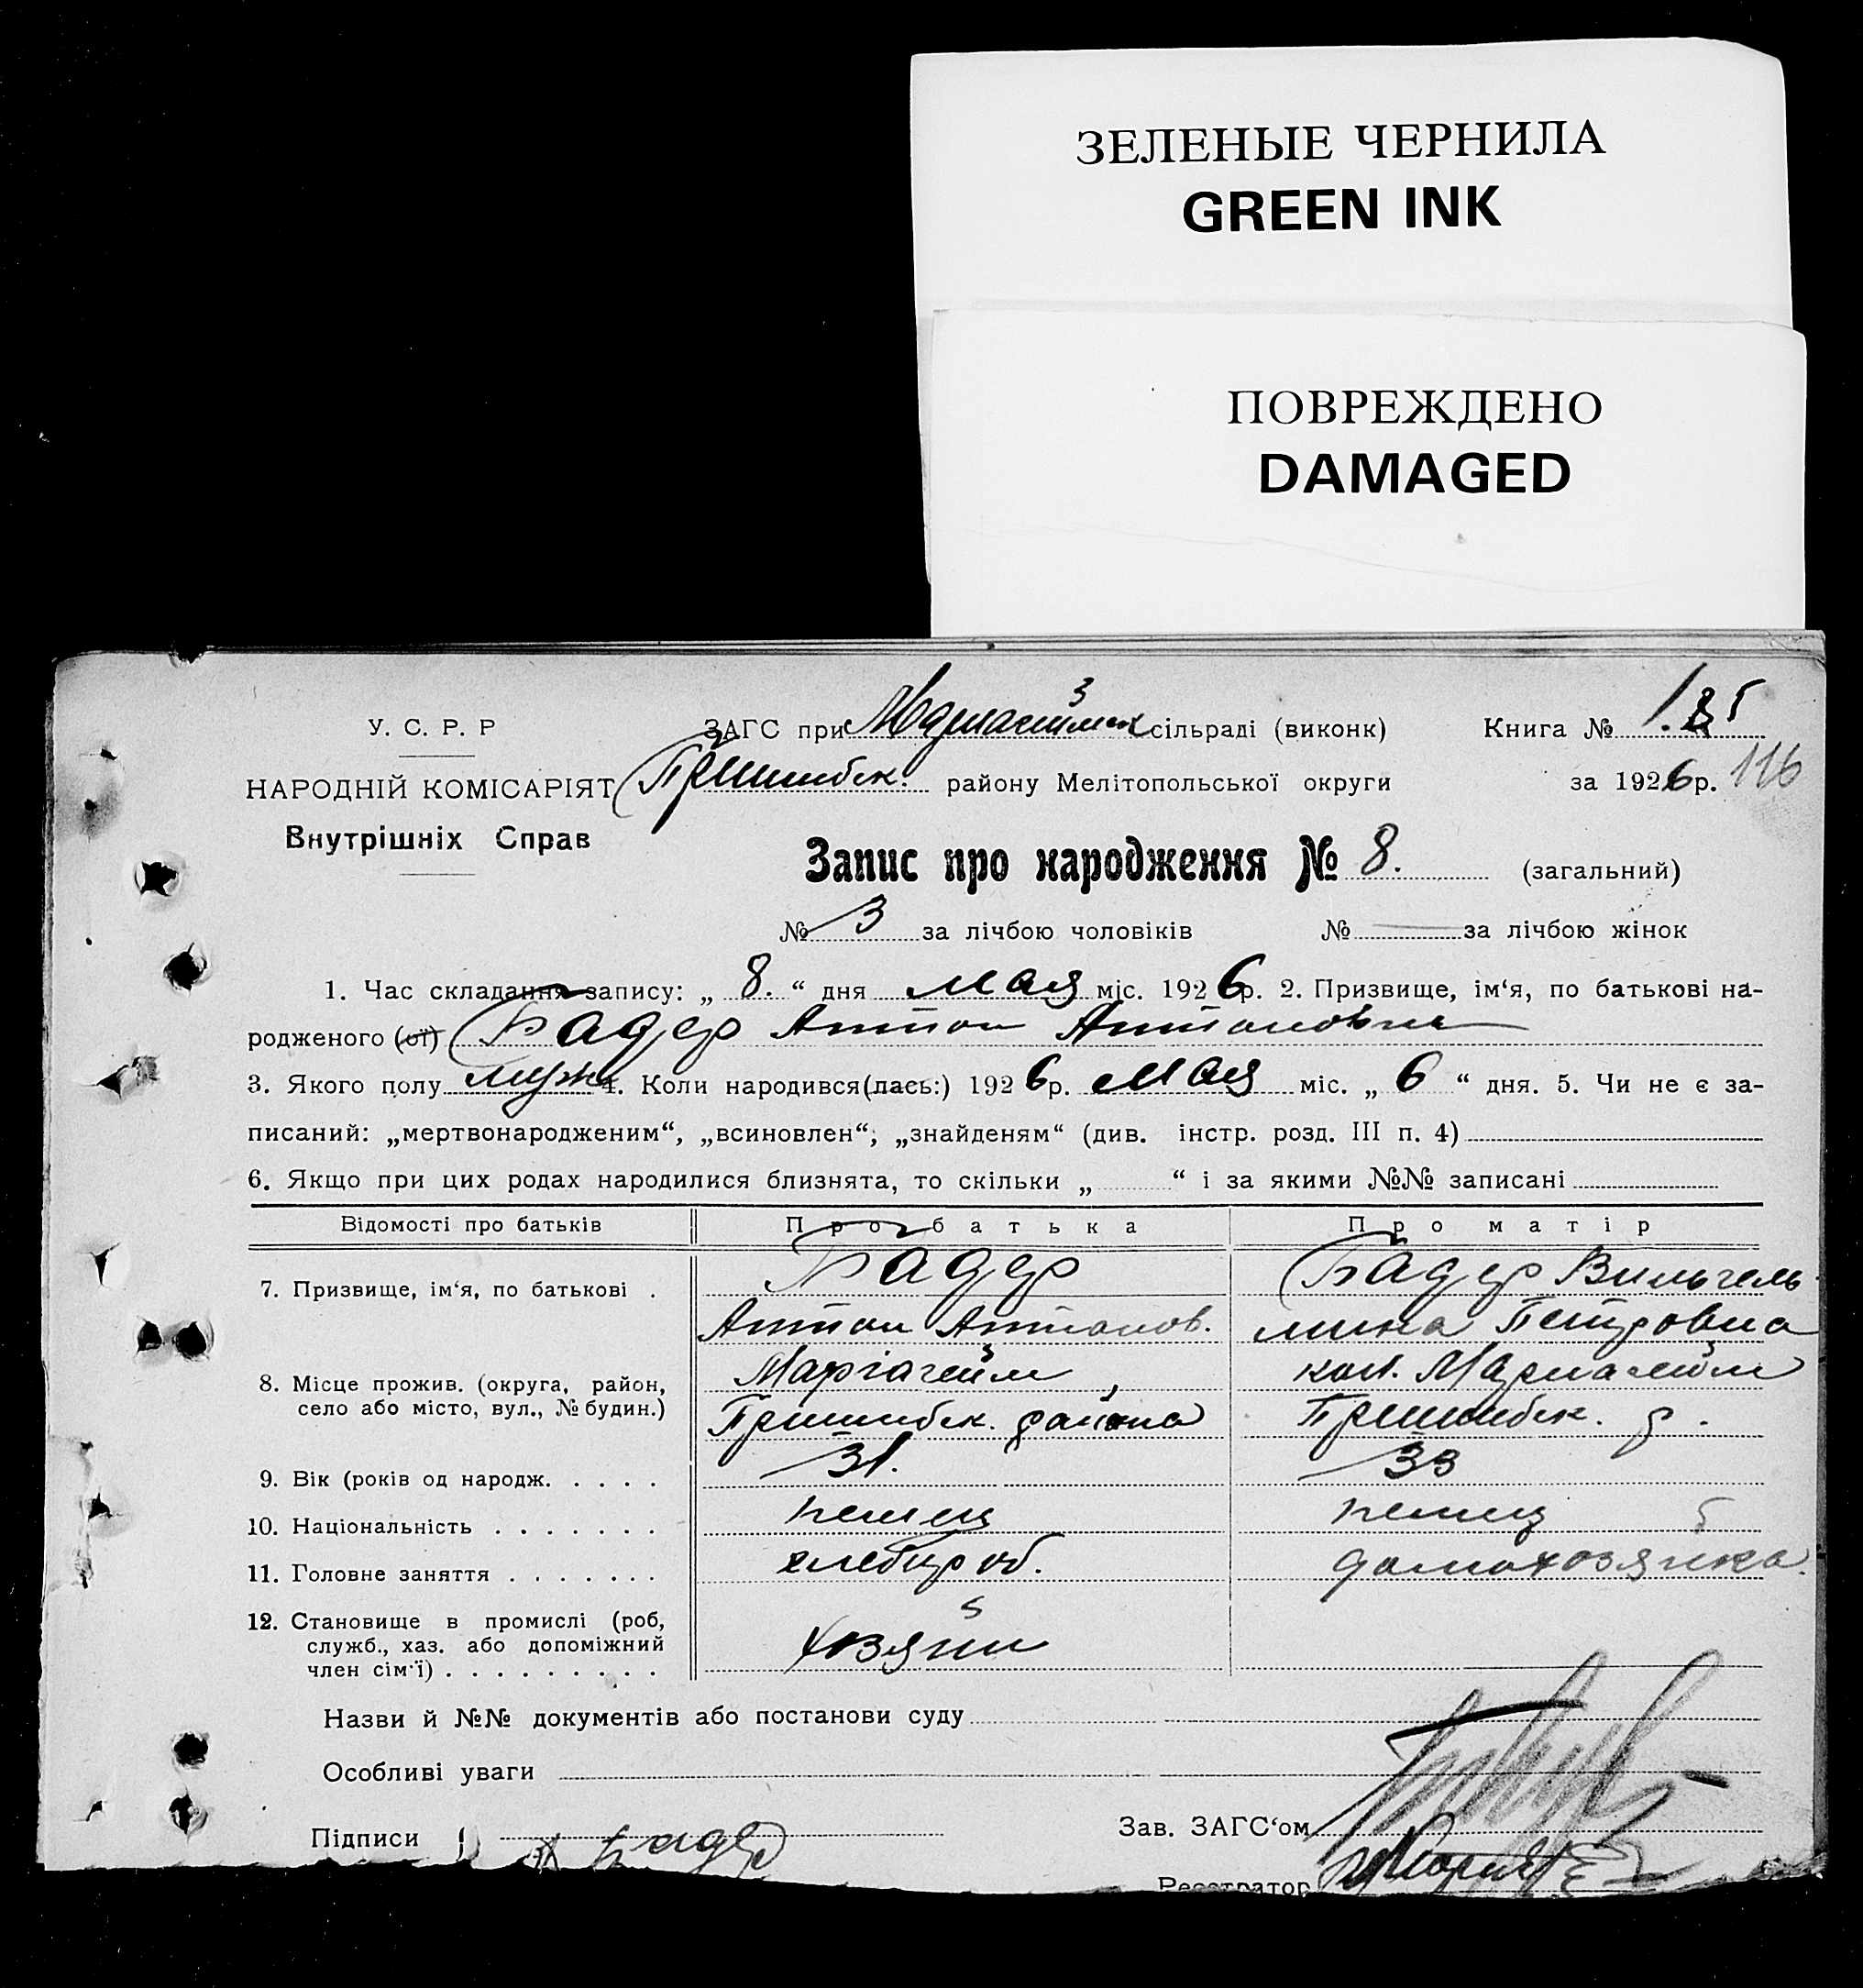 ЗЕЛЕНЫЕ ЧЕРНИЛА
GREEN INK
ПОВРЕЖДЕНО
DAMAGED
У. С. Р. Р
ЗАГС при сільраді (виконк) Книга №
116
НАРОДНІЙ КОМІСАРІЯТ Пришибск. району Мелітопольської округи за 1926 р.
Внутрішніх Справ
Запис про народження № 8. (загальний)
№ 3 за лічбою чоловіків № — за лічбою жінок
1. Час складання запису: „ 8. “ дня мая міс. 1926р. 2. Призвище, ім‘я, по батькові на-
родженого (ої) Бадер Антон Антонович
3. Якого полу муж 4. Коли народився(лась:) 1926р. мая міс. „ 6 “ дня. 5. Чи не є за-
писаний: „мертвонародженим“, „всиновлен“, „знайденям“ (див. інстр. розд. III п. 4)
6. Якщо при цих родах народилися близнята, то скільки „ “ і за якими №№ записані
Відомості про батьків Про батька Про матір
7. Призвище, ім‘я, по батькові . Бадер Бадер Вильгель
Антон Антонов. мина Петровна
8. Місце прожив. (округа, район, Маріагейм, кол. Мариагейм
село або місто, вул., № будин.) Пришибск. района Пришибск. р.
9. Вік (років од народж. . . . . 31. 33
10. Національність . . . . . . . немец немец
11. Головне заняття . . . . . . . хлебороб. домохозяйка.
12. Становище в промислі (роб,
служб., хаз. або допоміжний хозяин
член сім‘ї) . . . . . . . . .
Назви й №№ документів або постанови суду
Особливі уваги
Зав. ЗАГС‘ом
Підписи 1) А Бадер
Реєстратор